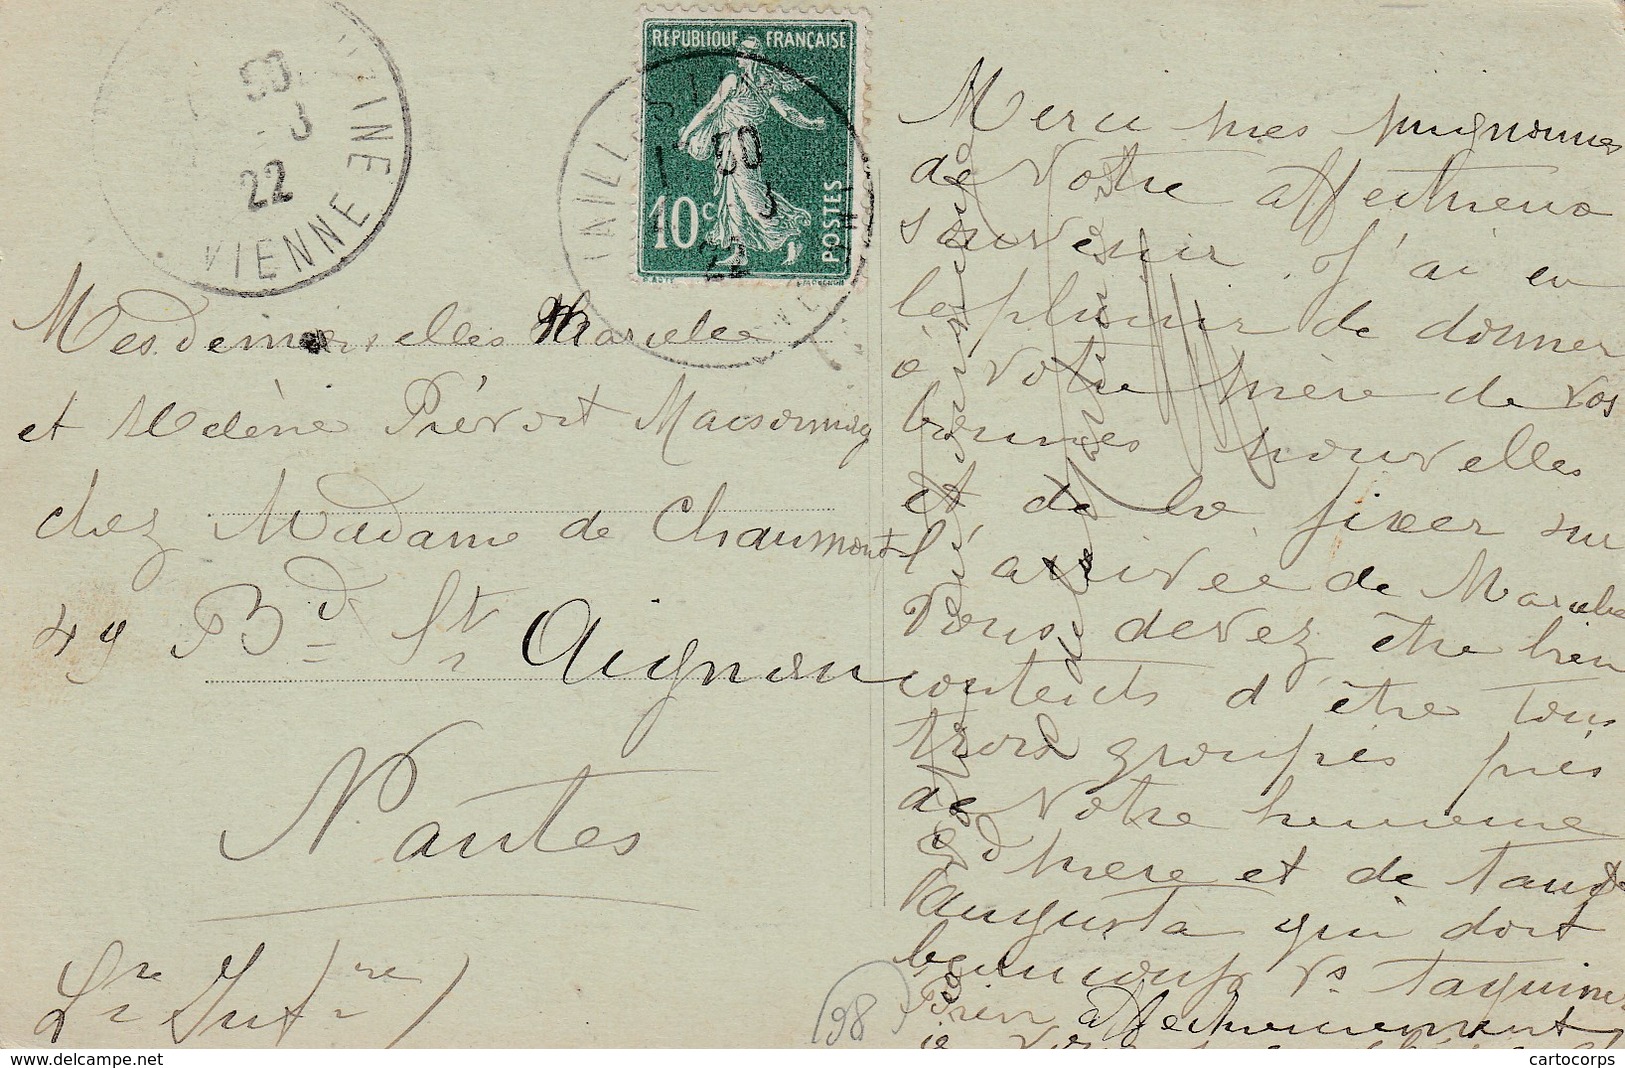 RÉPUBLIQUE FRANÇAISE
10c
POSTES
50
-3
22
VIENNE
1 50
3
22
Mesdemoiselles
et Hélène Prévost Maisonnay
chez Madame de Chaumont
49 Bd St Aignan
Nantes
Lre Infre
98
Merci mes mignonnes
de votre affectueux
souvenir. J'ai eu
le plaisir de donner
à votre mère de vos
bonnes nouvelles
et de la fixer sur
l'arrivée de
Vous devez être bien
contents d'être tous
trois groupés près
de votre
gd mère et de tante
Augusta qui doit
beaucoup vs taquiner
Bien affectueusement
je